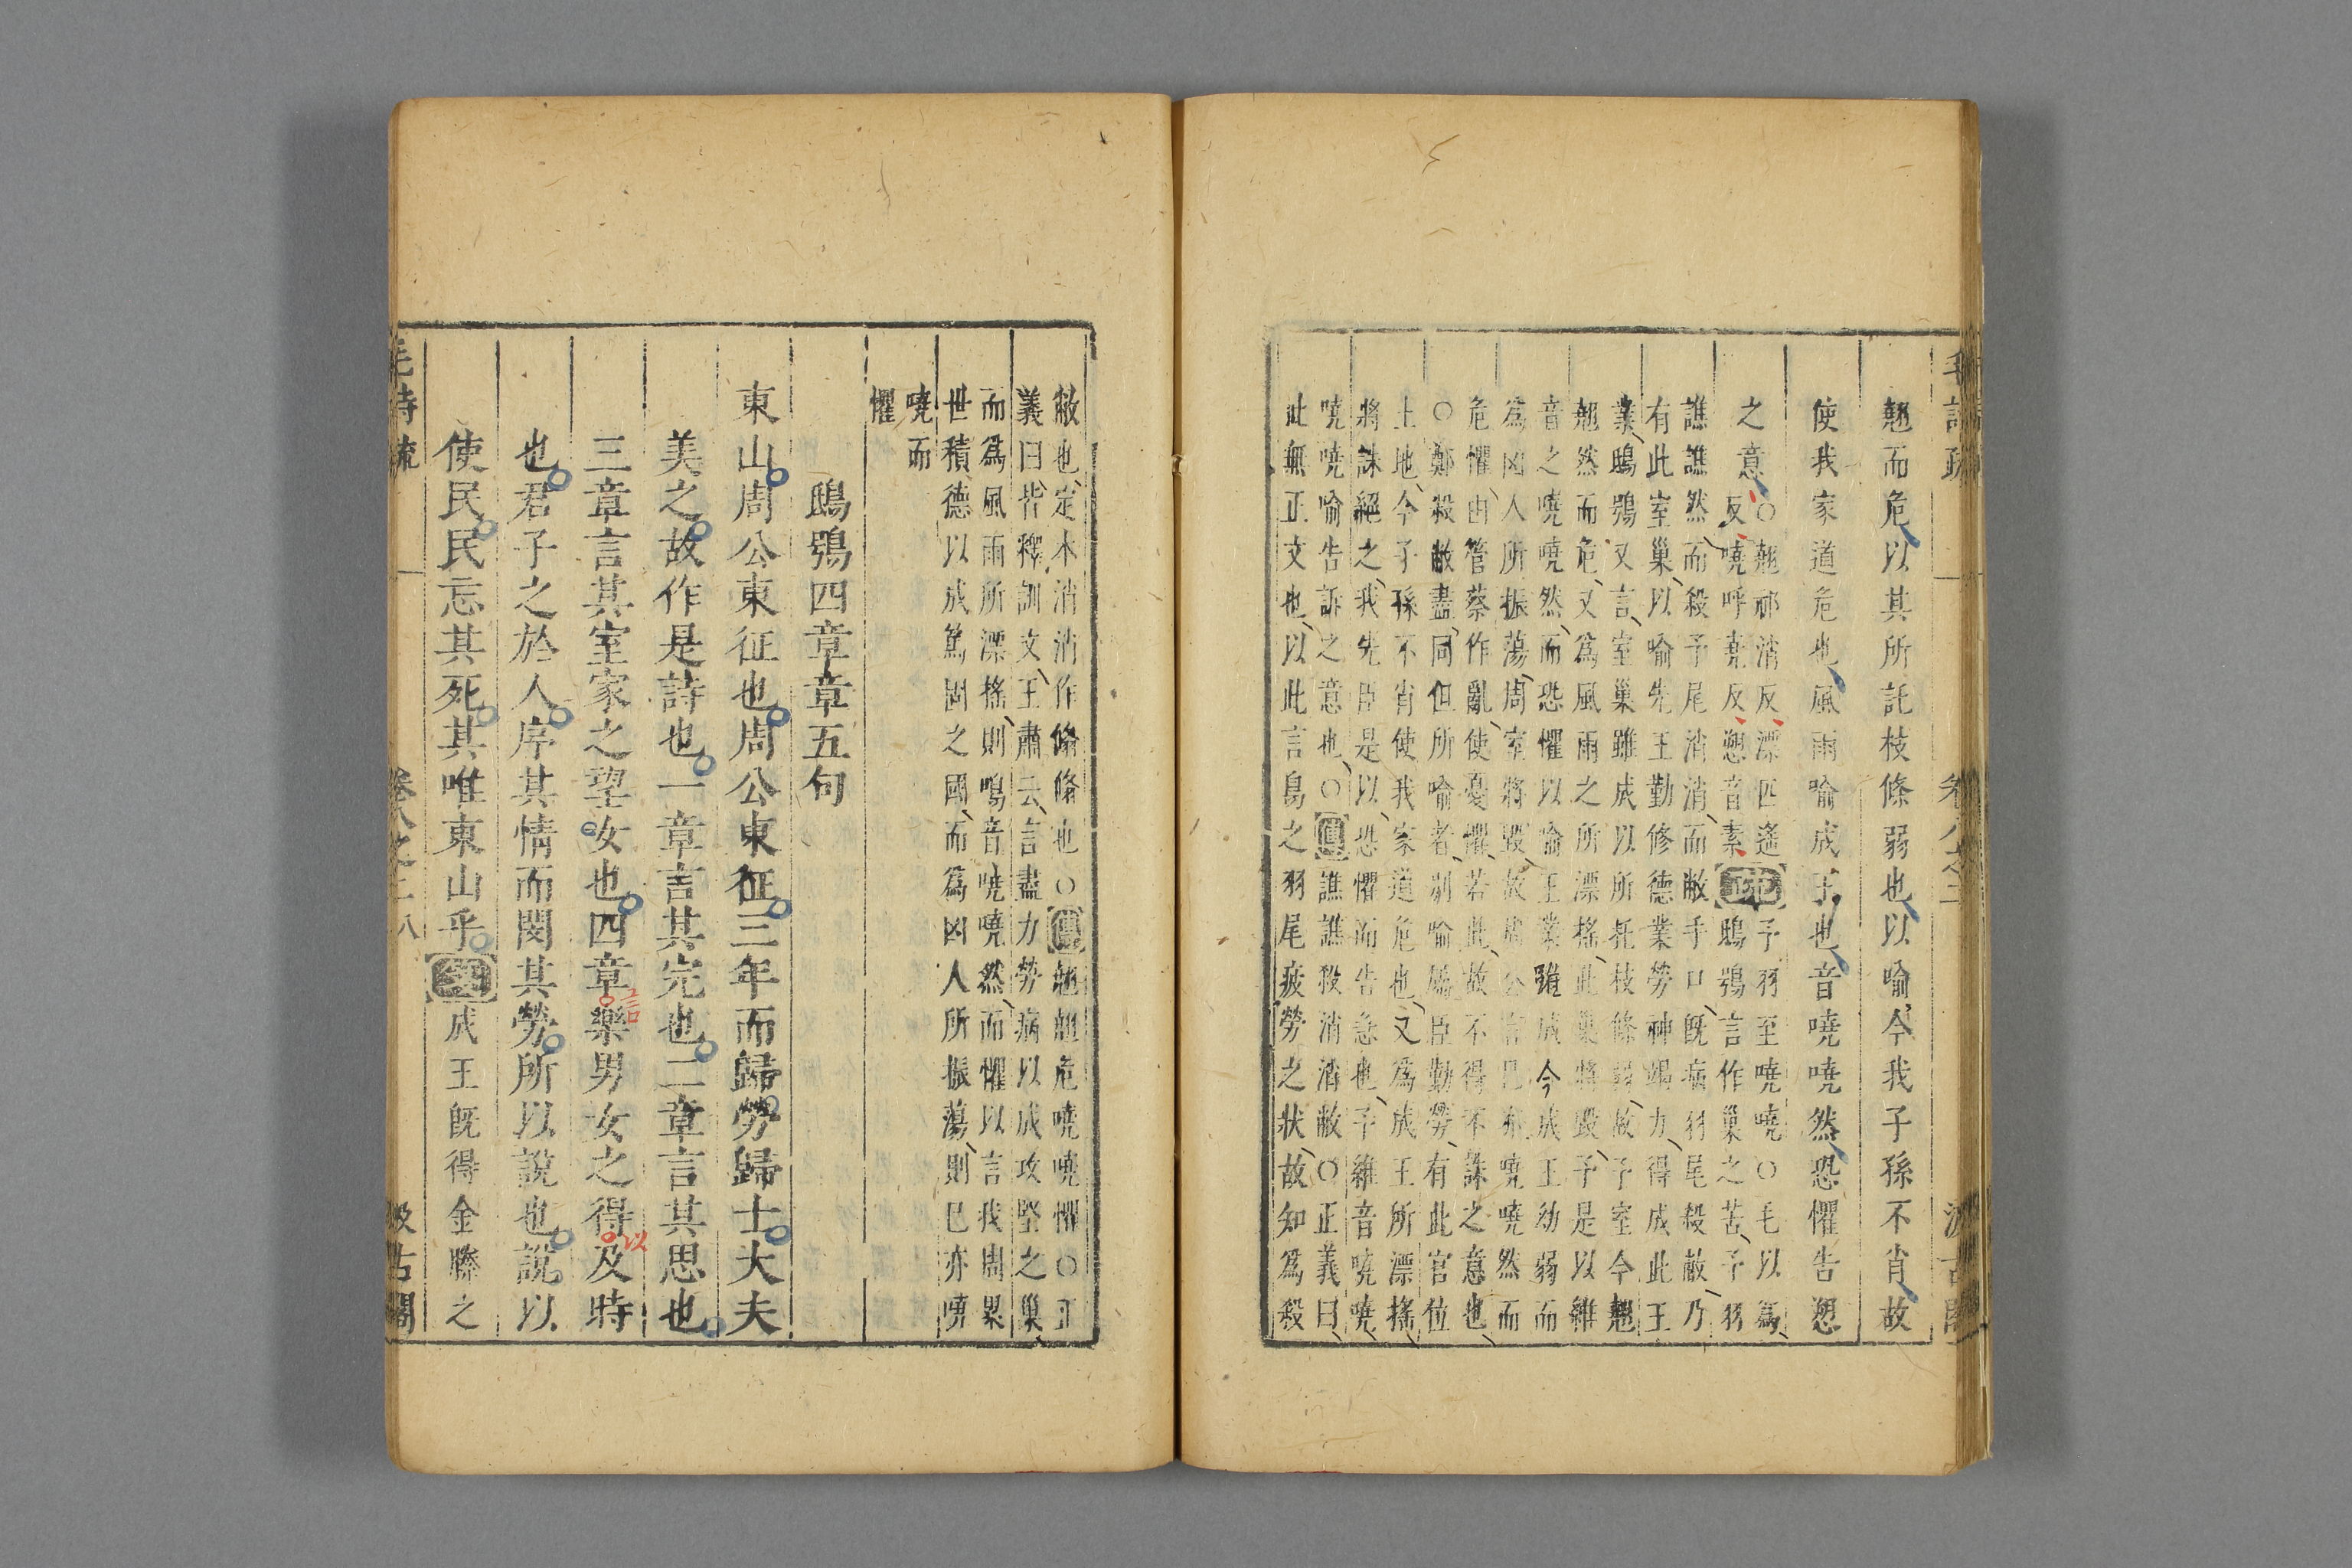 翹而危以其所託枝條弱也以喻今我子孫不肖故
使我家道危也風雨喻成王也音嘵嘵然恐懼告愬
之意
○翹祁消反漂匹遙
反嘵呼堯反愬音素
疏
予羽至嘵嘵○毛以為
鴟鴞言作巢之苦予羽
譙譙然而殺予尾消消而敝手口旣病羽尾殺敝乃
有此室巢以喻先王勤修德業勞神竭力得成此王
業鴟鴞又言室巢雖成以所托枝條弱故予室今翹
翹然而危又為風雨之所漂搖此巢將毀予是以維
音之嘵嘵然而恐懼以喻王業雖成今成王幼弱而
為凶人所振蕩周室將毀故周公言巳亦嘵嘵然而
危懼由管蔡作亂使憂懼若此故不得不誅之意也
○鄭殺敝盡同但所喻者別喻屬臣勤勞有此官位
土地今子孫不肖使我家道危也又為成王所漂搖
將誅絕之我先臣是以恐懼而告急也予維音嘵嘵
嘵嘵喻告訴之意也○傳譙譙殺消消敝○正義曰
此無正文也以此言鳥之羽尾疲勞之狀故知為殺
敝也定本消消作翛翛也○傳翹翹危嘵嘵懼○正
義曰皆釋訓文王肅云言盡力勞病以成攻堅之巢
而為風雨所漂搖則鳴音嘵嘵然而懼以言我周累
世積德以成篤固之國而為凶人所振蕩則巳亦嘵
嘵而
懼
鴟鴞四章章五句
東山周公東征也周公東征三年而歸勞歸士大夫
美之故作是詩也一章言其完也二章言其思也
三章言其室家之望女也四章樂男女之得及時
言
以
也君子之於人序其情而閔其勞所以說也說以
使民民忘其死其唯東山乎箋成王旣得金縢之
毛詩疏 卷八之二 八 汲古閣